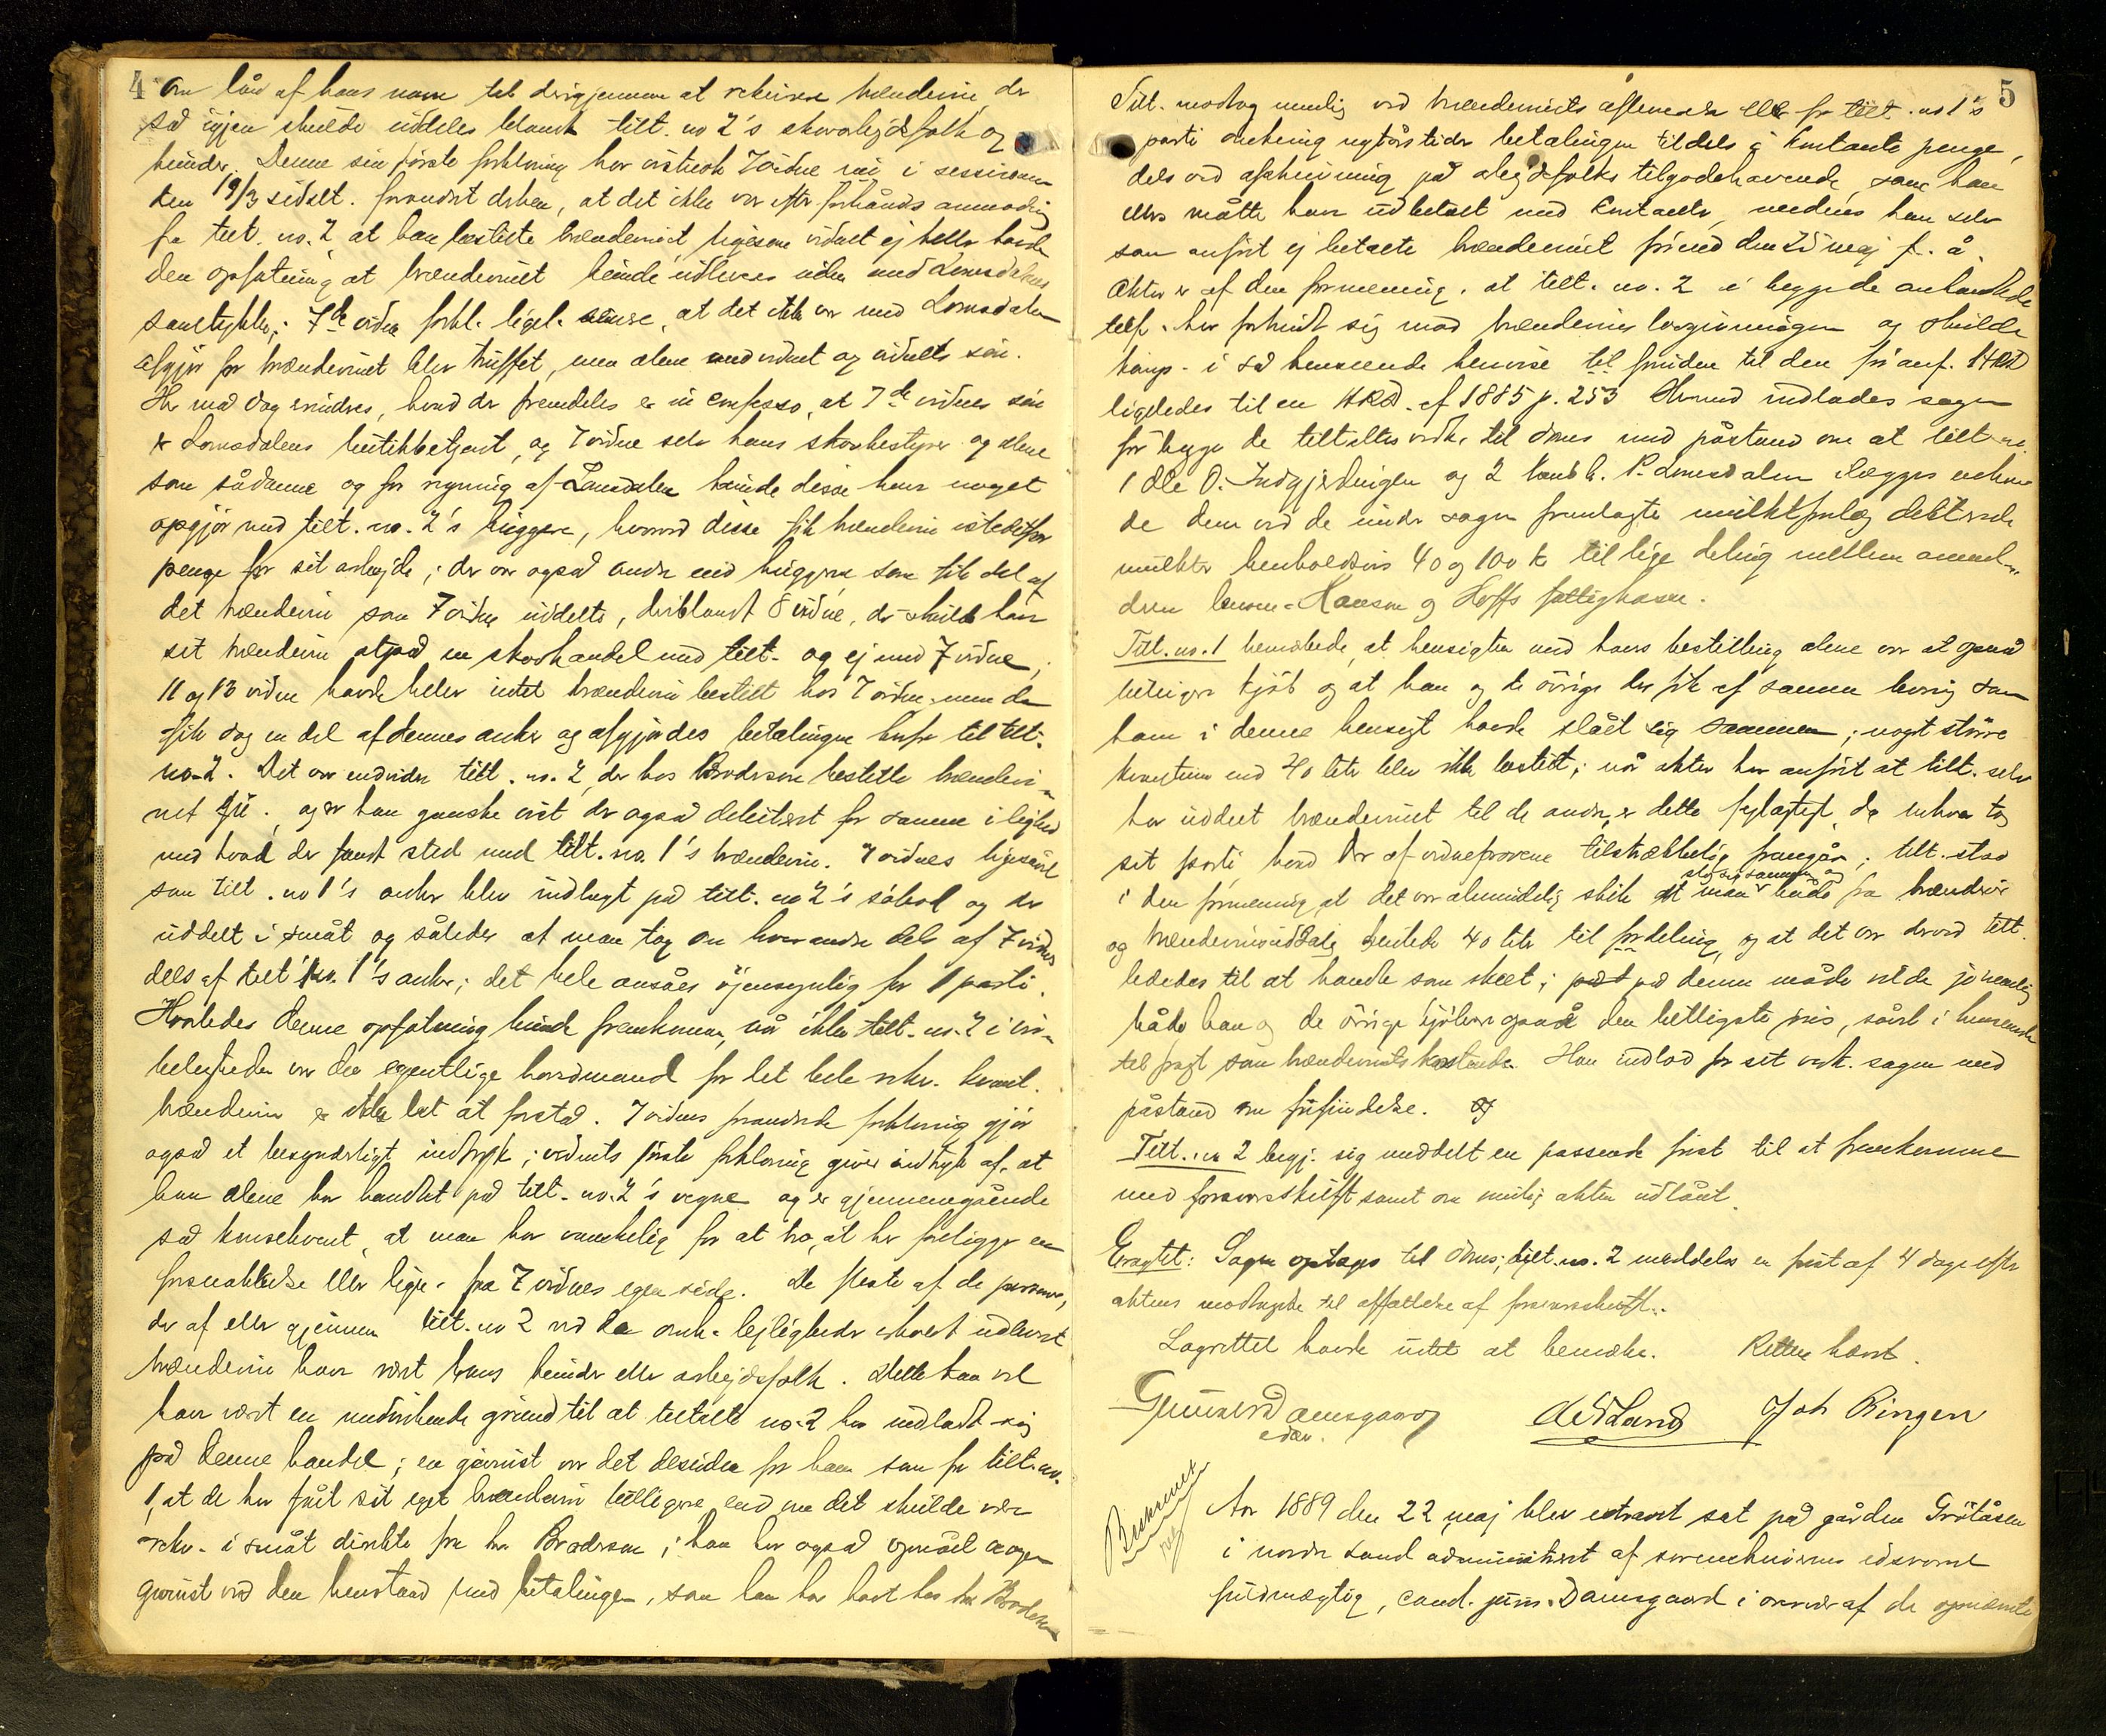 4
om lån af hans navn til derigjennem at rekvirere brændevin, der
så igjen skulde uddeles blandt tilt. no 2's skovarbejdsfolk og
kunder. Denne sin første forklaring har vistnok 7 vidne nu i sessionen
den 19/3 sidst. forandret derhen, at det ikke var efter forhånds anmodning
fra tilt. no. 2 at han bestilte brændevinet ligesom vidnet ej heller havde
den opfatning at brændevinet kunde udleveres uden med Lomsdalens
samtykke; 7de vidne forkl. ligel. senere, at det ikke var med Lomsdalen
afgjør for brændevinet blev truffet, men alene med vidnet og vidnets søn.
Her må dog erindres, hvad der fremdeles er in confesso, at 7de vidnes søn
er Lomsdalens butikbetjent, og 7 vidne selv hans skovbestyrer og alene
som sådanne og for regning af Lomsdalen kunde disse have noget
opgjør med tilt. no. 2's huggere, hvorved disse fik brændevin istedetfor
penge for sit arbejde; der var også andre end huggerne som fik del af
det brændevin som 7 vidne uddelte, deriblandt 8 vidne, der skulde have
sit brændevin afgjort på en skovhandel med tilt. og ej med 7 vidne;
11 og 13 vidne havde heller intet brændevin bestilt hos 7 vidne, men de
fik dog en del af dennes anker og afgjordes betalingen herfor til tilt.
no. 2. Det var endvidere tilt. no. 2, der hos Brodersen bestilte brændevi-
net, og er han ganske vist der også debiteret for samme i lighed
med hvad der fandt sted med tilt. no. 1's brændevin. 7 vidnes ligesåvel
som tilt. no 1's anker blev indlagt på tilt. no 2's søbod og der
uddelt i småt og således at man tog om hverandre dels af 7 vidnes
dels af tilt. no. 1's anker; det hele ansåes øjensynlig for 1 parti.
Hvorledes denne opfatning kunde fremkomme, når ikke tilt. no. 2 i vir-
keligheden var den egentlige hovedmand for det hele rekv. kvant.
brændevin er ikke let at forstå. 7 vidnes forandrede forklaring gjør
også et besynderligt indtryk; vidnets første forklaring giver indtryk af, at
han alene har handlet på tilt. no. 2's vegne og er gjennemgående
så konsekvent, at man har vanskelig for at tro, at her foreligger en
forsnakkelse eller lign. fra 7 vidnes egen side. De fleste af de personer,
der af eller gjennem tilt. no 2 ved de omh. lejligheder erholdt udleveret
brændevin have været hans kunder eller arbejdsfolk. Dette kan vel
have været en medvirkende grund til at tiltalte no. 2 har indladt sig
på denne handel; en gevinst var det desuden for ham som for tilt. no.
1, at de har fået sit eget brændevin billigere end om det skulde være
rekv. i småt direkte fra hr Brodersen; han har også opnået nogen
gevinst ved den henstand med betalingen, som han har havt hos hr Brodersen
5
Tilt. modtog nemlig ved brændevinets afleverede eller for tilt. no 1's
parti omkring nytårstider betalingen tildels i kontante penge,
dels ved afskrivning på arbejdsfolks tilgodehavende, som han
ellers måtte have udbetalt med kontanter, medens han selv
som anført ej betalte brændevinet førend den maj f. å.
Aktor er af den formening, at tilt. no. 2 i begge de omhandlede
tilf. har forbrudt sig mod brændevins lovgivningen og skulde
komp. i så henseende henvise til foruden til den før anf. HRD
ligeledes til en HRD. af 1885 p. 253 Hermed indlades sagen
for begge de tiltaltes vedk. til doms med påstand om at tilt no.
1 Ole O. Indgjerdingen og 2 landh. P. Lomsdalen ilægges enhver
de dem ved de under sagen fremlagte mulktforelæg dikterede
mulkter henholdsvis 40 og 100 kr til lige deling mellem anmel-
deren Hansen og Hoffs fattigkasse.
Tilt. no. 1 bemærkede, at hensigten med hans bestilling alene var at opnå
billigere kjøb og at han og de øvrige der fik af samme levering som
ham i denne hensigt havde slået sig sammen; noget større
kvantum end 40 liter blev ikke bestilt; når aktor har anført at tilt. selv
har uddelt brændevinet til de andre, er dette fejlagtigt, da enhver tog
sit parti, hvad der af vidneprovene tilstrækkelig fremgår; tilt. stod
slog sig sammen og
i den formening, at det var almindelig skik at man både fra brænderier
og brændevinsudsalg hentede 40 liter til fordeling, og at det var derved tilt.
lededes til at handle som skeet; på denne måde vilde jo nemlig
både han og de øvrige kjøbere opnå den billigste pris, såvel i henseende
til fragt som brændevinets kostende. Han indlod for sit vedk. sagen med
påstand om frifindelse.
Tilt. no 2 begj. sig meddelt en passende frist til at fremkomme
med forsvarsskrift samt om mulig akten udlånt.
Eragtet: Sagen optages til doms; tilt. no. 2 meddeles en frist af 4 dage efter
aktens modtagelse til affattelse af forsvarsskrift.
Lagrettet havde intet at bemærke. Retten hævet.
Gunnerd Damsgaard
edsv.
A Ødsland Joh Ringen
Beskrevet
Aar 1889 den 22 maj blev extraret sat på gården Grøtåsen
i nordre Land administreret af sorenskriverens edsvorne
fuldmægtig, cand. juris. Damsgaard i overvær af de opnævnte